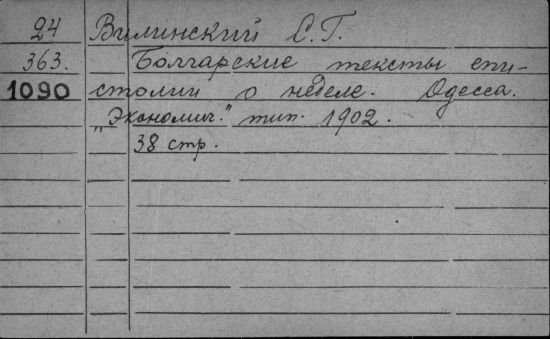 24 Вилинский С.Г.
363. Болгарские тексты епи-
1090 столии о неделе. Одесса.
„Экономич." тип. 1902.
38 стр.